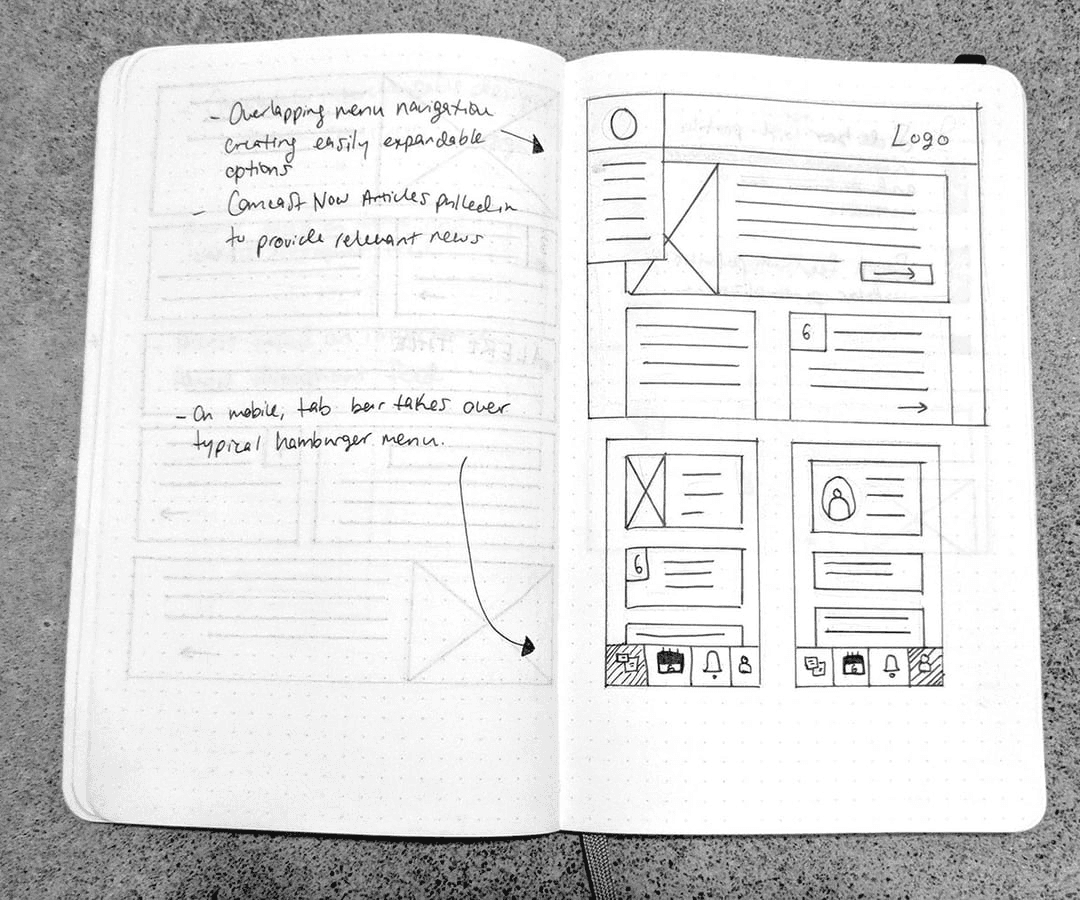 - Overlapping menu navigation
creating easily expandable
options
- Comcast Now Articles pulled in
to provide relevant news.
- On mobile, tab bar takes over
typical hamburger menu.
Logo
6
6
6
6